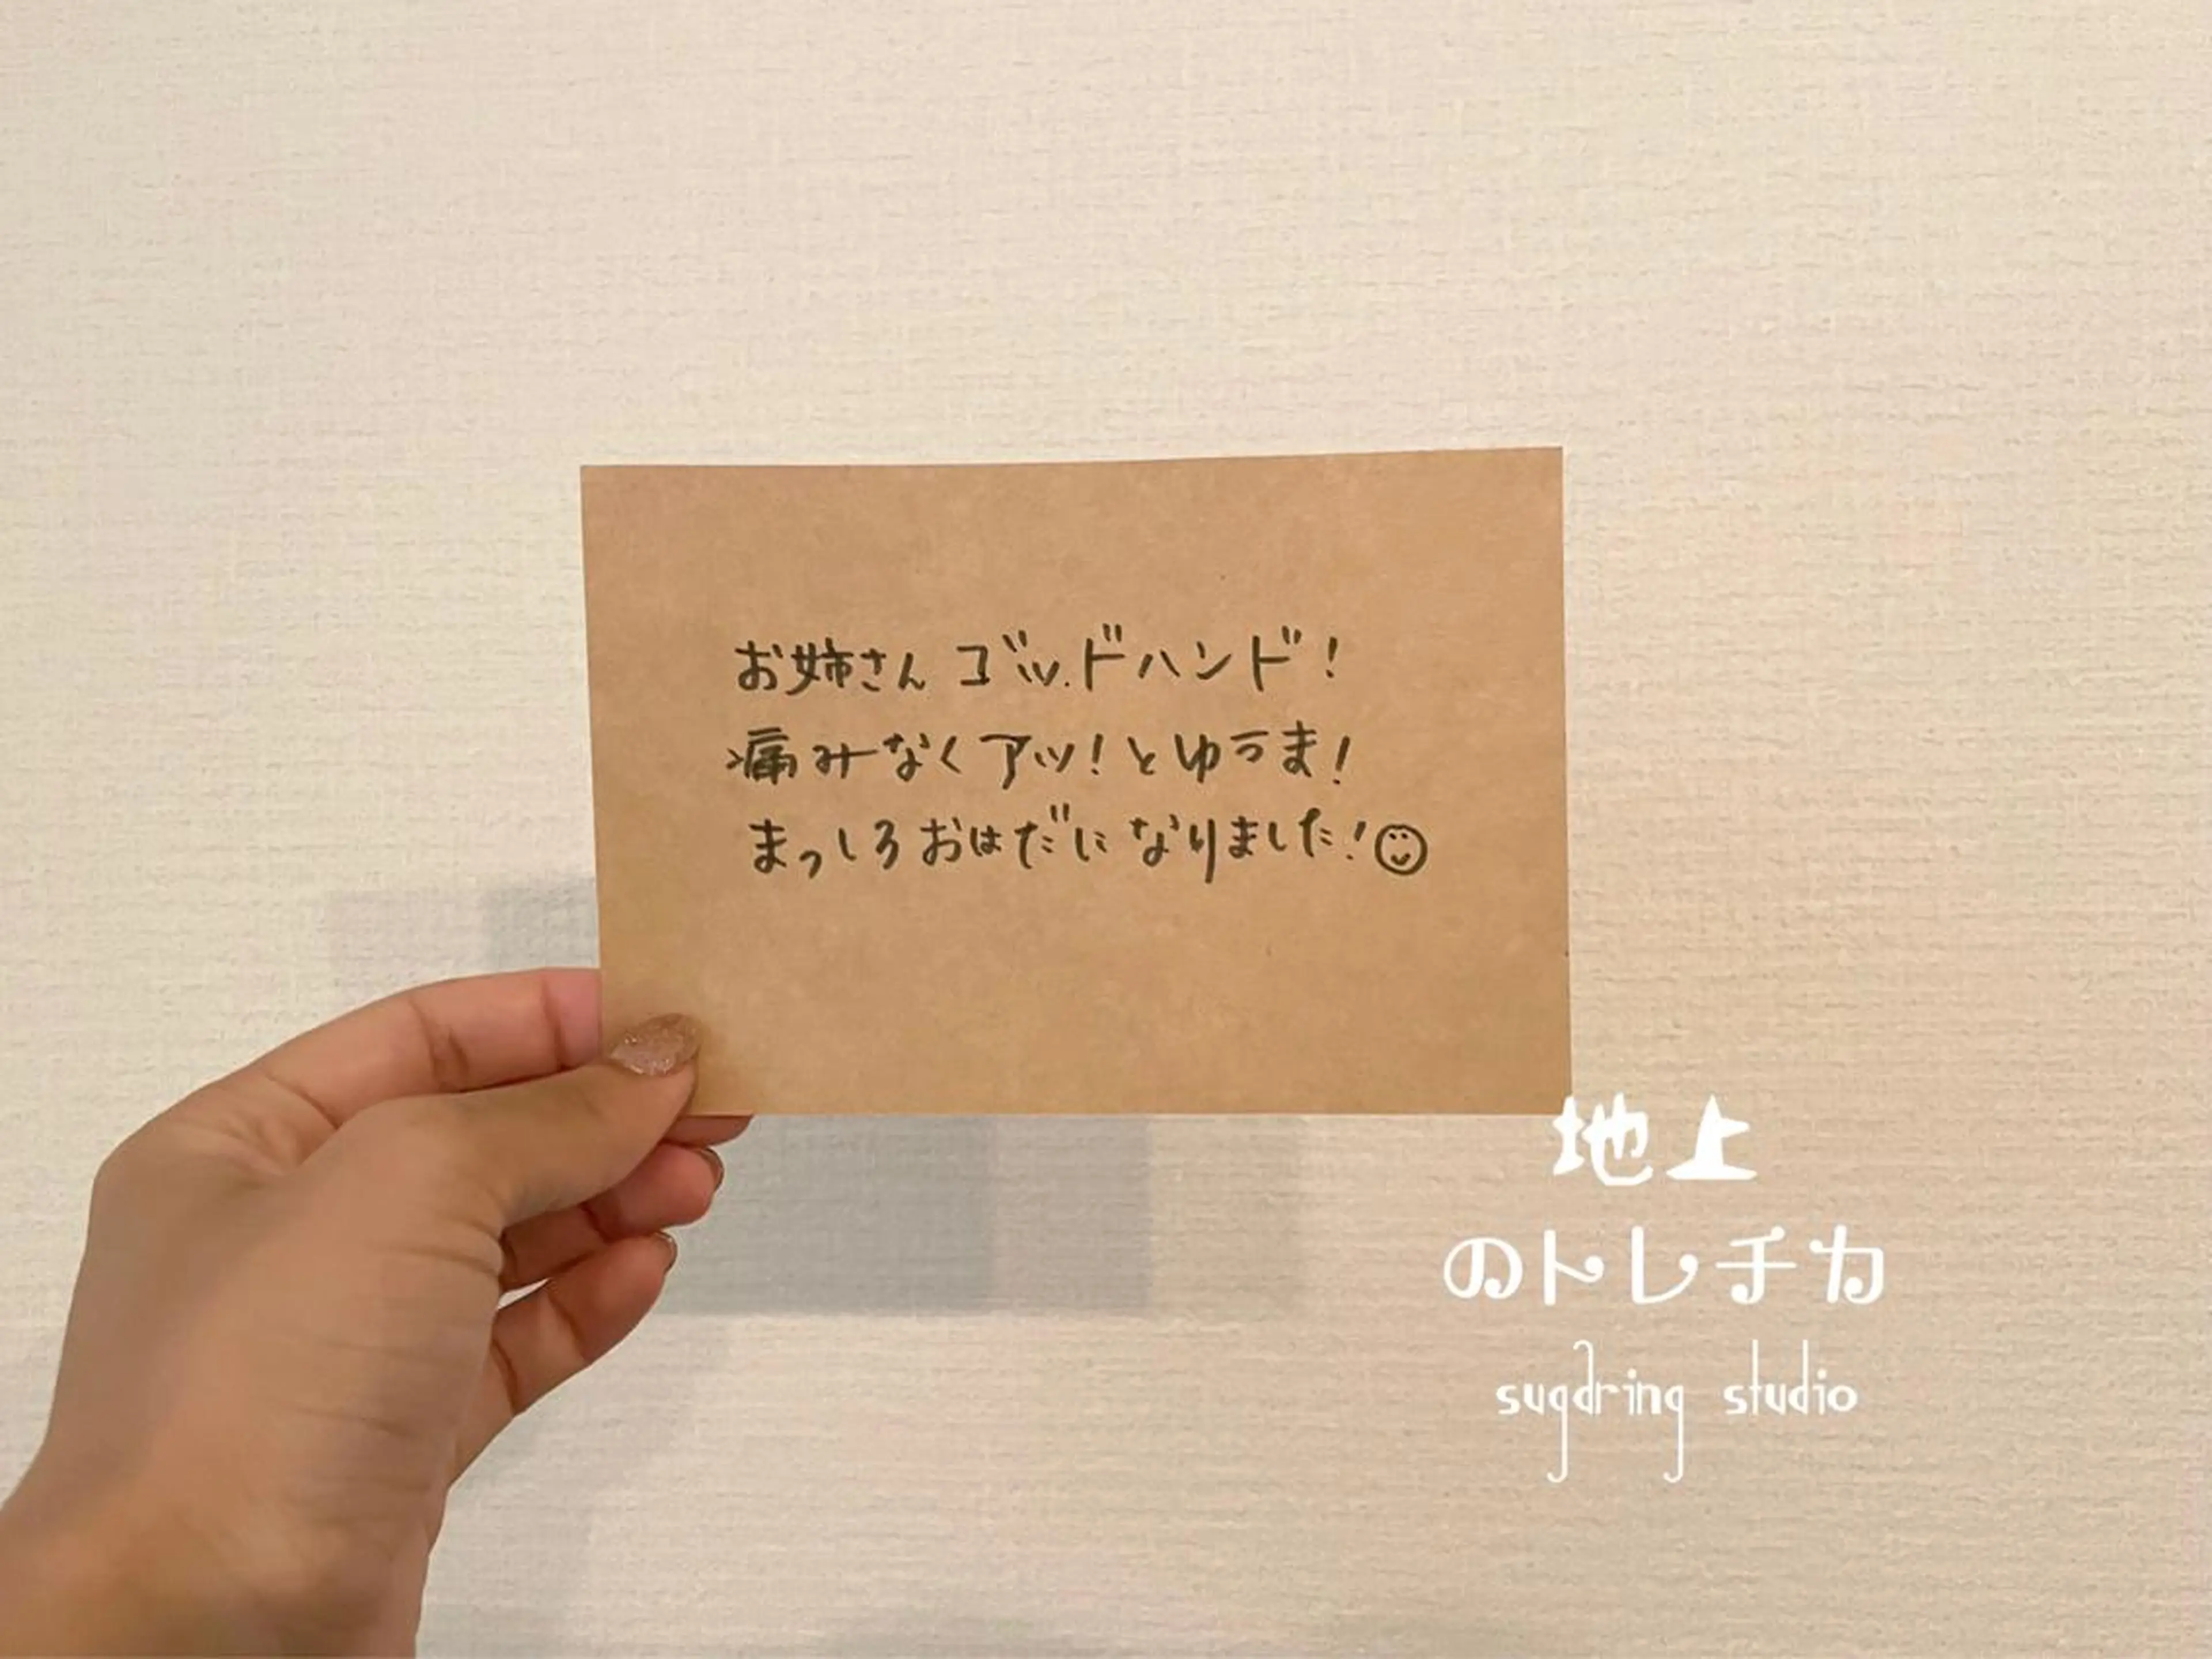 お姉さんゴッドハンド!
痛みなくアッ!とゆうま!
まっしろおはだになりました!
地上
のトレチカ
sugdring studio